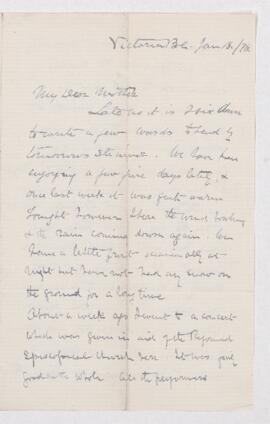 Victoria B.C. Jan 31/78
My Dear Mother
Late as it is I sit down
to write a few words to send by
tomorrows steamer. We have been
enjoying a few fine days lately, &
once last week it was quite warm
Tonight however I hear the wind
& the rain coming down again. We
have a little frost occasionally at
night but have not had any snow on
the ground for a long time
About a week ago I went to a concert
which was given in aid of the Reformed
Episcopal Church here. It was
good on the whole all the performers